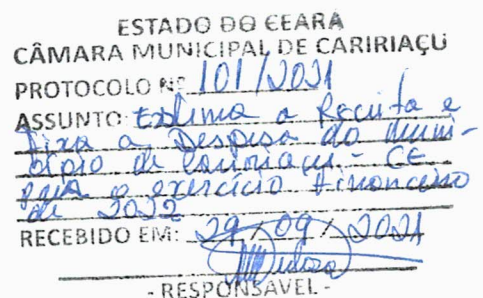 ESTADO DO CEARÁ
CÂMARA MUNICIPAL DE CARIRIAÇU
PROTOCOLO Nº 101/2021
ASSUNTO: Estima a Receita e
Fixa a Despesa do Muni-
cípio de Caririaçu - CE
para o exercício Financeiro
de 2022
RECEBIDO EM: 29/09/2021
- RESPONSÁVEL -